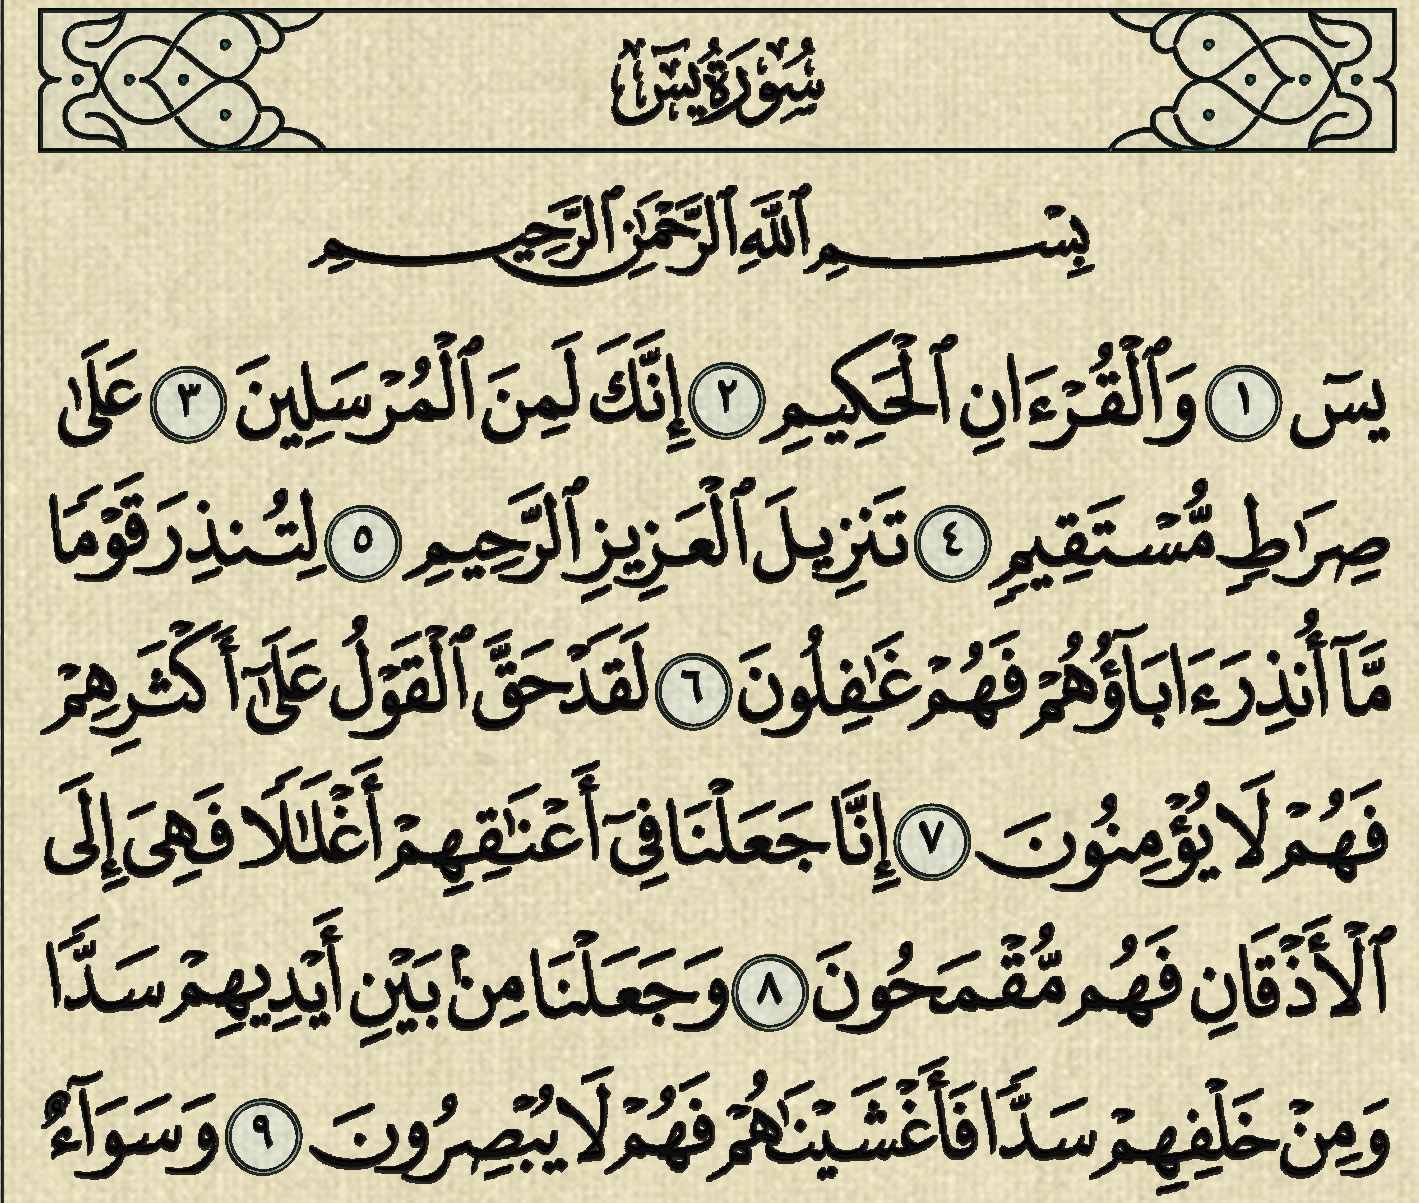 سُورَةُ يسٓ
بِسْمِ ٱللَّهِ ٱلرَّحْمَٰنِ ٱلرَّحِيمِ
يسٓ ١ وَٱلْقُرْءَانِ ٱلْحَكِيمِ ٢ إِنَّكَ لَمِنَ ٱلْمُرْسَلِينَ ٣ عَلَىٰ
صِرَٰطٍ مُّسْتَقِيمٍ ٤ تَنزِيلَ ٱلْعَزِيزِ ٱلرَّحِيمِ ٥ لِتُنذِرَ قَوْمًا
مَّآ أُنذِرَ ءَابَآؤُهُمْ فَهُمْ غَٰفِلُونَ ٦ لَقَدْ حَقَّ ٱلْقَوْلُ عَلَىٰٓ أَكْثَرِهِمْ
فَهُمْ لَا يُؤْمِنُونَ ٧ إِنَّا جَعَلْنَا فِىٓ أَعْنَٰقِهِمْ أَغْلَٰلًا فَهِىَ إِلَى
ٱلْأَذْقَانِ فَهُم مُّقْمَحُونَ ٨ وَجَعَلْنَا مِنۢ بَيْنِ أَيْدِيهِمْ سَدًّا
وَمِنْ خَلْفِهِمْ سَدًّا فَأَغْشَيْنَٰهُمْ فَهُمْ لَا يُبْصِرُونَ ٩ وَسَوَآءٌ